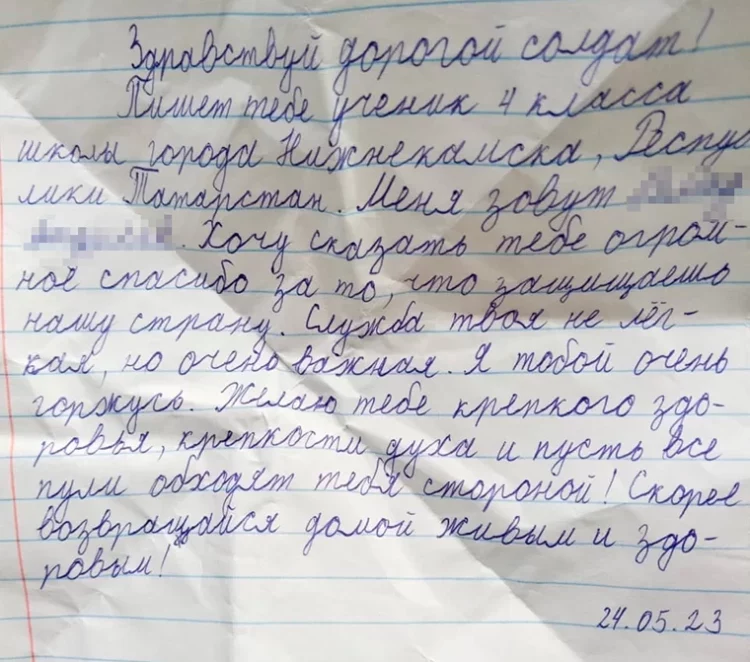 Здравствуй дорогой солдат!
Пишет тебе ученик 4 класса
школы города Нижнекамска, Респуб
лики Татарстан. Меня зовут
. Хочу сказать тебе огром-
ное спасибо за то, что защищаешь
нашу страну. Служба твоя не лёг-
кая, но очень важная. Я тобой очень
горжусь. Желаю тебе крепкого здо-
ровья, крепкости духа и пусть все
пули обходят тебя стороной! Скорее
возвращайся домой живым и здо-
ровым!
24.05.23